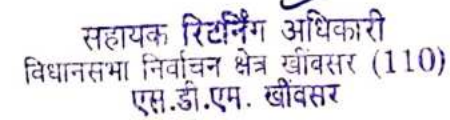 सहायक रिटर्निंग अधिकारी
विधानसभा निर्वाचन क्षेत्र खींवसर (110)
एस.डी.एम. खींवसर